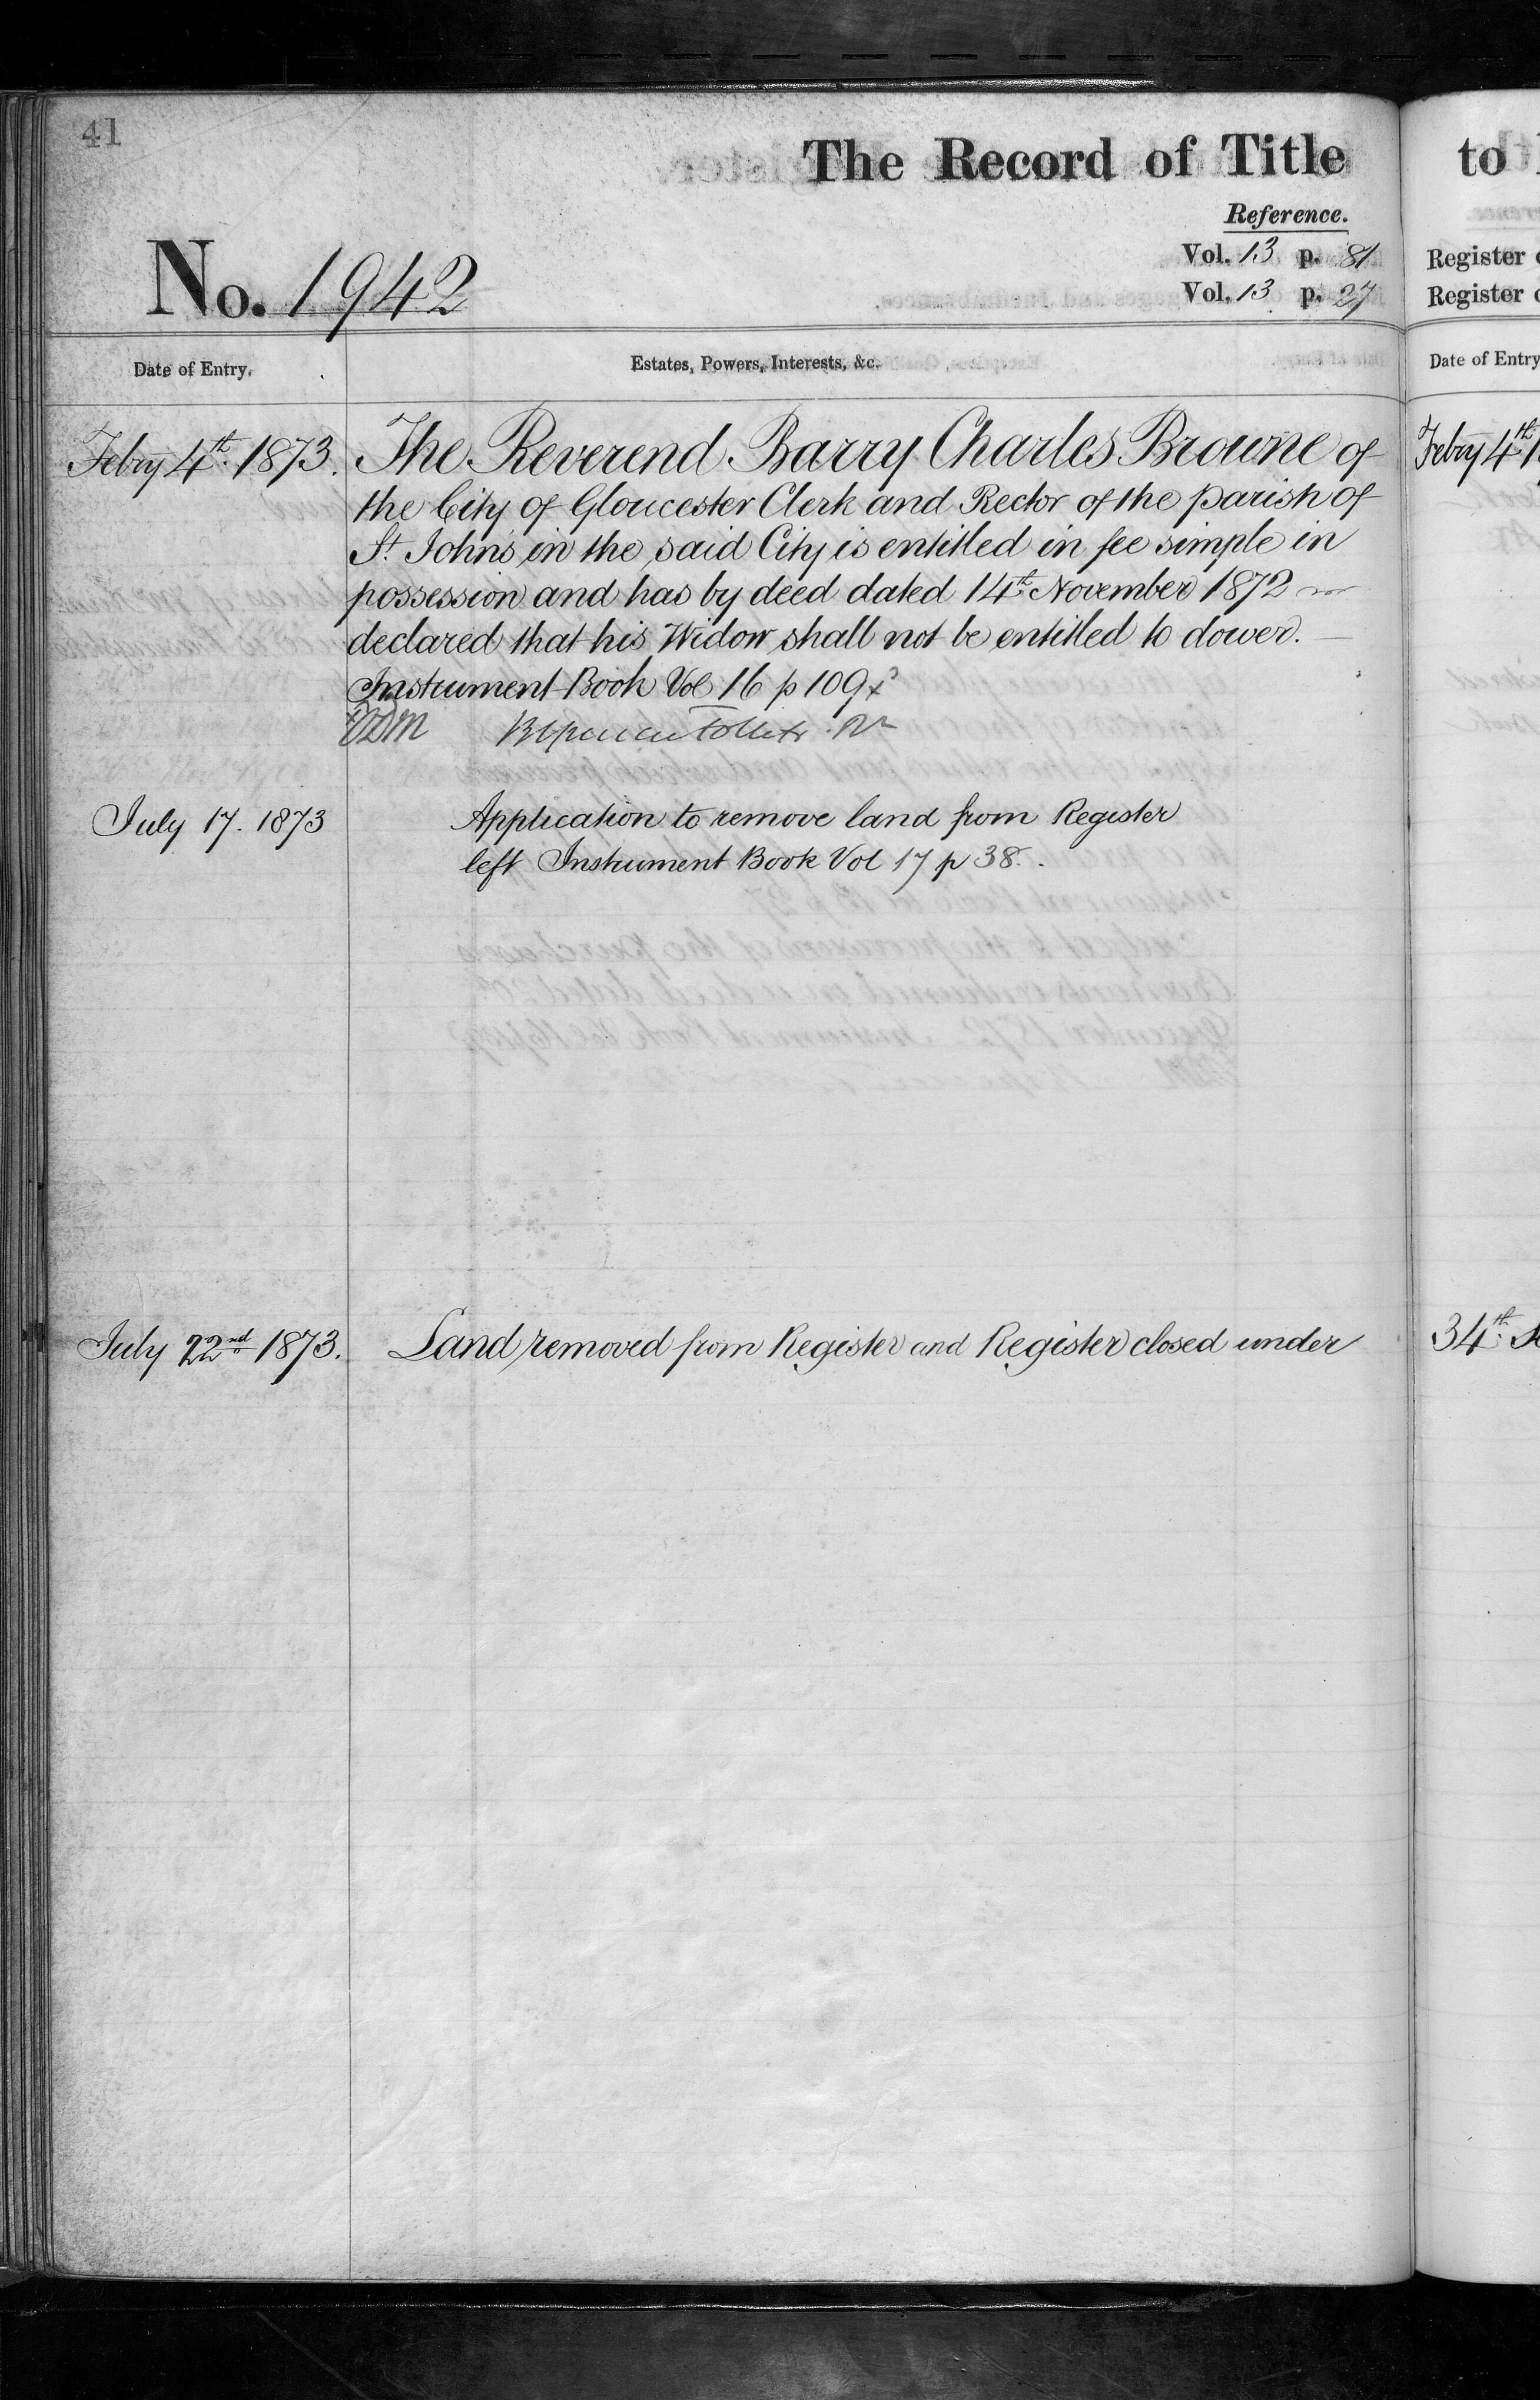 41
The Record of Title
Reference.
Vol. 13 p. 81
No. 1942
Vol. 13 p. 27
Date of Entry.
Estates, Powers, Interests, &c.
Febry 4th. 1873. The Reverend Barry Charles Browne of
the City of Gloucester Clerk and Rector of the parish of
St. John's in the said City is entitled in fee simple in
possession and has by deed dated 14th November 1872
declared that his Widow shall not be entitled to dower. —
Instrument Book Vol 16 p 109
July 17. 1873 Application to remove land from Register
left Instrument Book Vol 17 p 38.
July 22nd 1873. Land removed from Register and Register closed under
to
Register
Register
Date of Entry
Febry 4th
34th